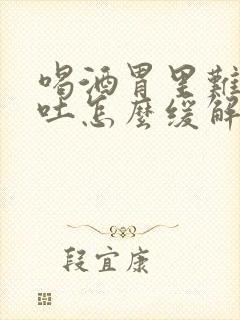 喝酒胃里難
吐怎麼緩解
段宜康